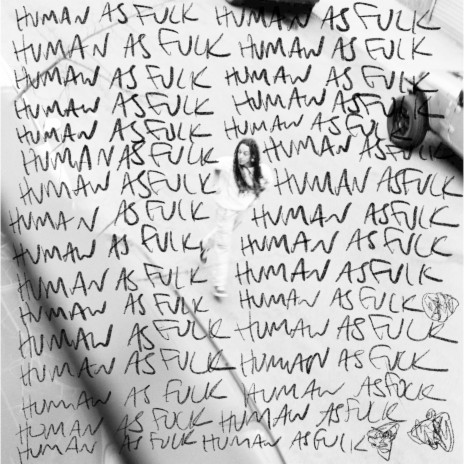 HUMAN AS FUCK HUMAN AS FUCK
HUMAN AS FUCK HUMAN AS FUCK
HUMAN AS FUCK HUMAN AS FUCK
HUMAN AS FUCK HUMAN AS FUCK
HUMAN AS FUCK HUMAN AS FUCK
HUMAN AS FUCK HUMAN AS FUCK
HUMAN AS FUCK HUMAN AS FUCK
HUMAN AS FUCK HUMAN AS FUCK
HUMAN AS FUCK HUMAN AS FUCK
HUMAN AS FUCK HUMAN AS FUCK
HUMAN AS FUCK HUMAN AS FUCK
HUMAN AS FUCK HUMAN AS FUCK
HUMAN AS FUCK HUMAN AS FUCK
HUMAN AS FUCK HUMAN AS FUCK
HUMAN AS FUCK HUMAN AS FUCK
HUMAN AS FUCK HUMAN AS FUCK